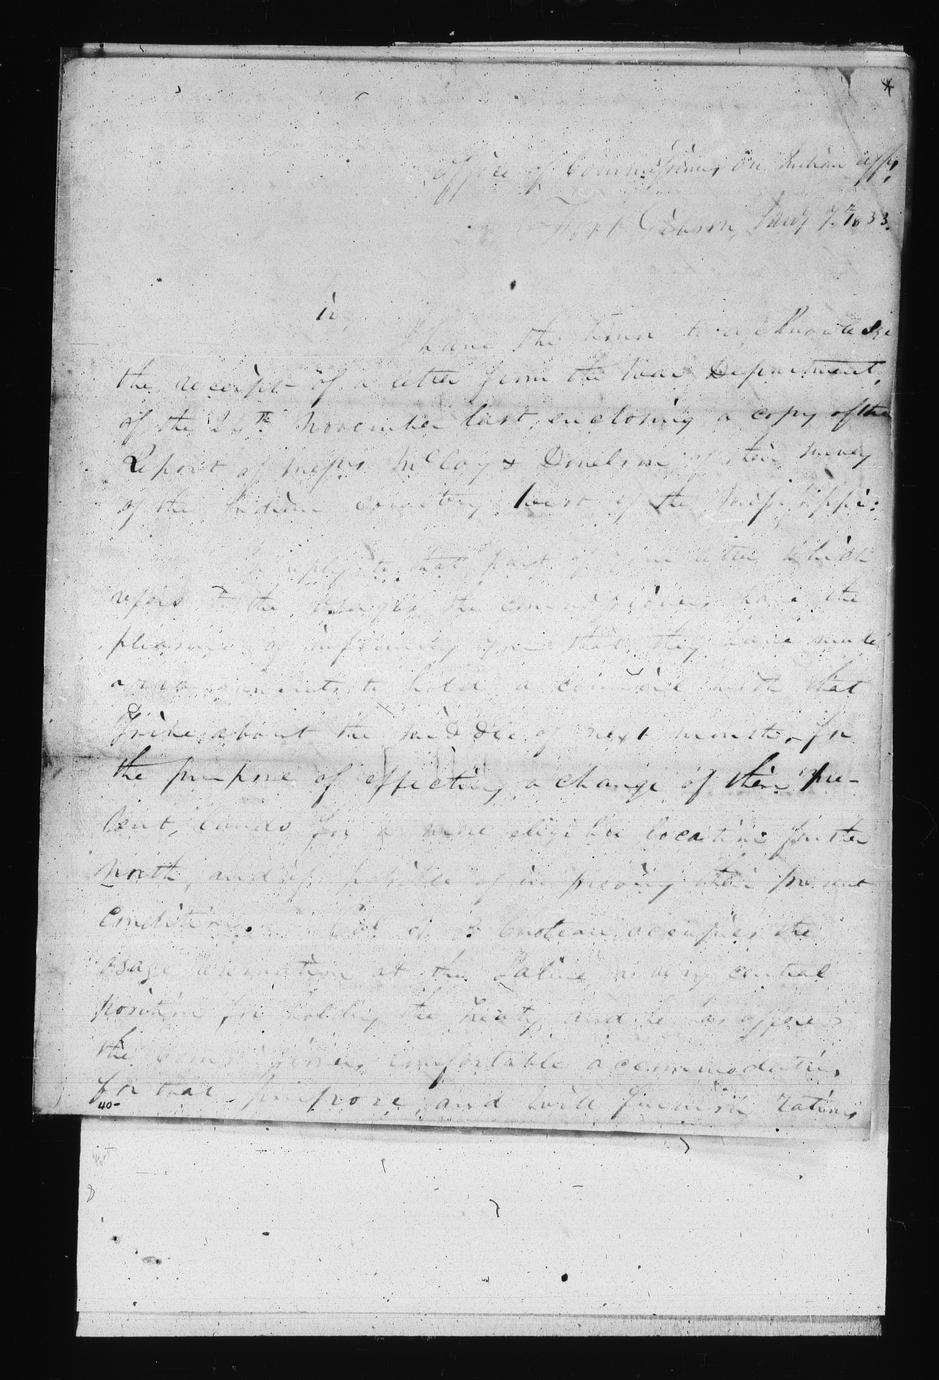 Office of Commissioners on Indian affs,
Fort Gibson, Jany 7th 33.
ir,
I have the honor to acknowledge
the receipt of a letter from the War Department,
of the November last, enclosing a copy of the
Report of Messrs McCoy & Donelson of their survey
of the Indian country West of the Mississippi:
In reply to that part of your letter which
refers to the Osages, the commissioners have the
pleasure of informing you that they have made
arrangements to hold a council with that
Tribe, about the middle of next month, for
the purpose of effecting a change of their pre-
sent, lands for a more eligible location further
north, and if possible of improving their present
condition. Col. Choteau occupies the
Osage at the Saline, a very central
position for holding the treaty, and he has offered
the Commissioners comfortable accommodations
for that purpose, and will furnish rations
40-